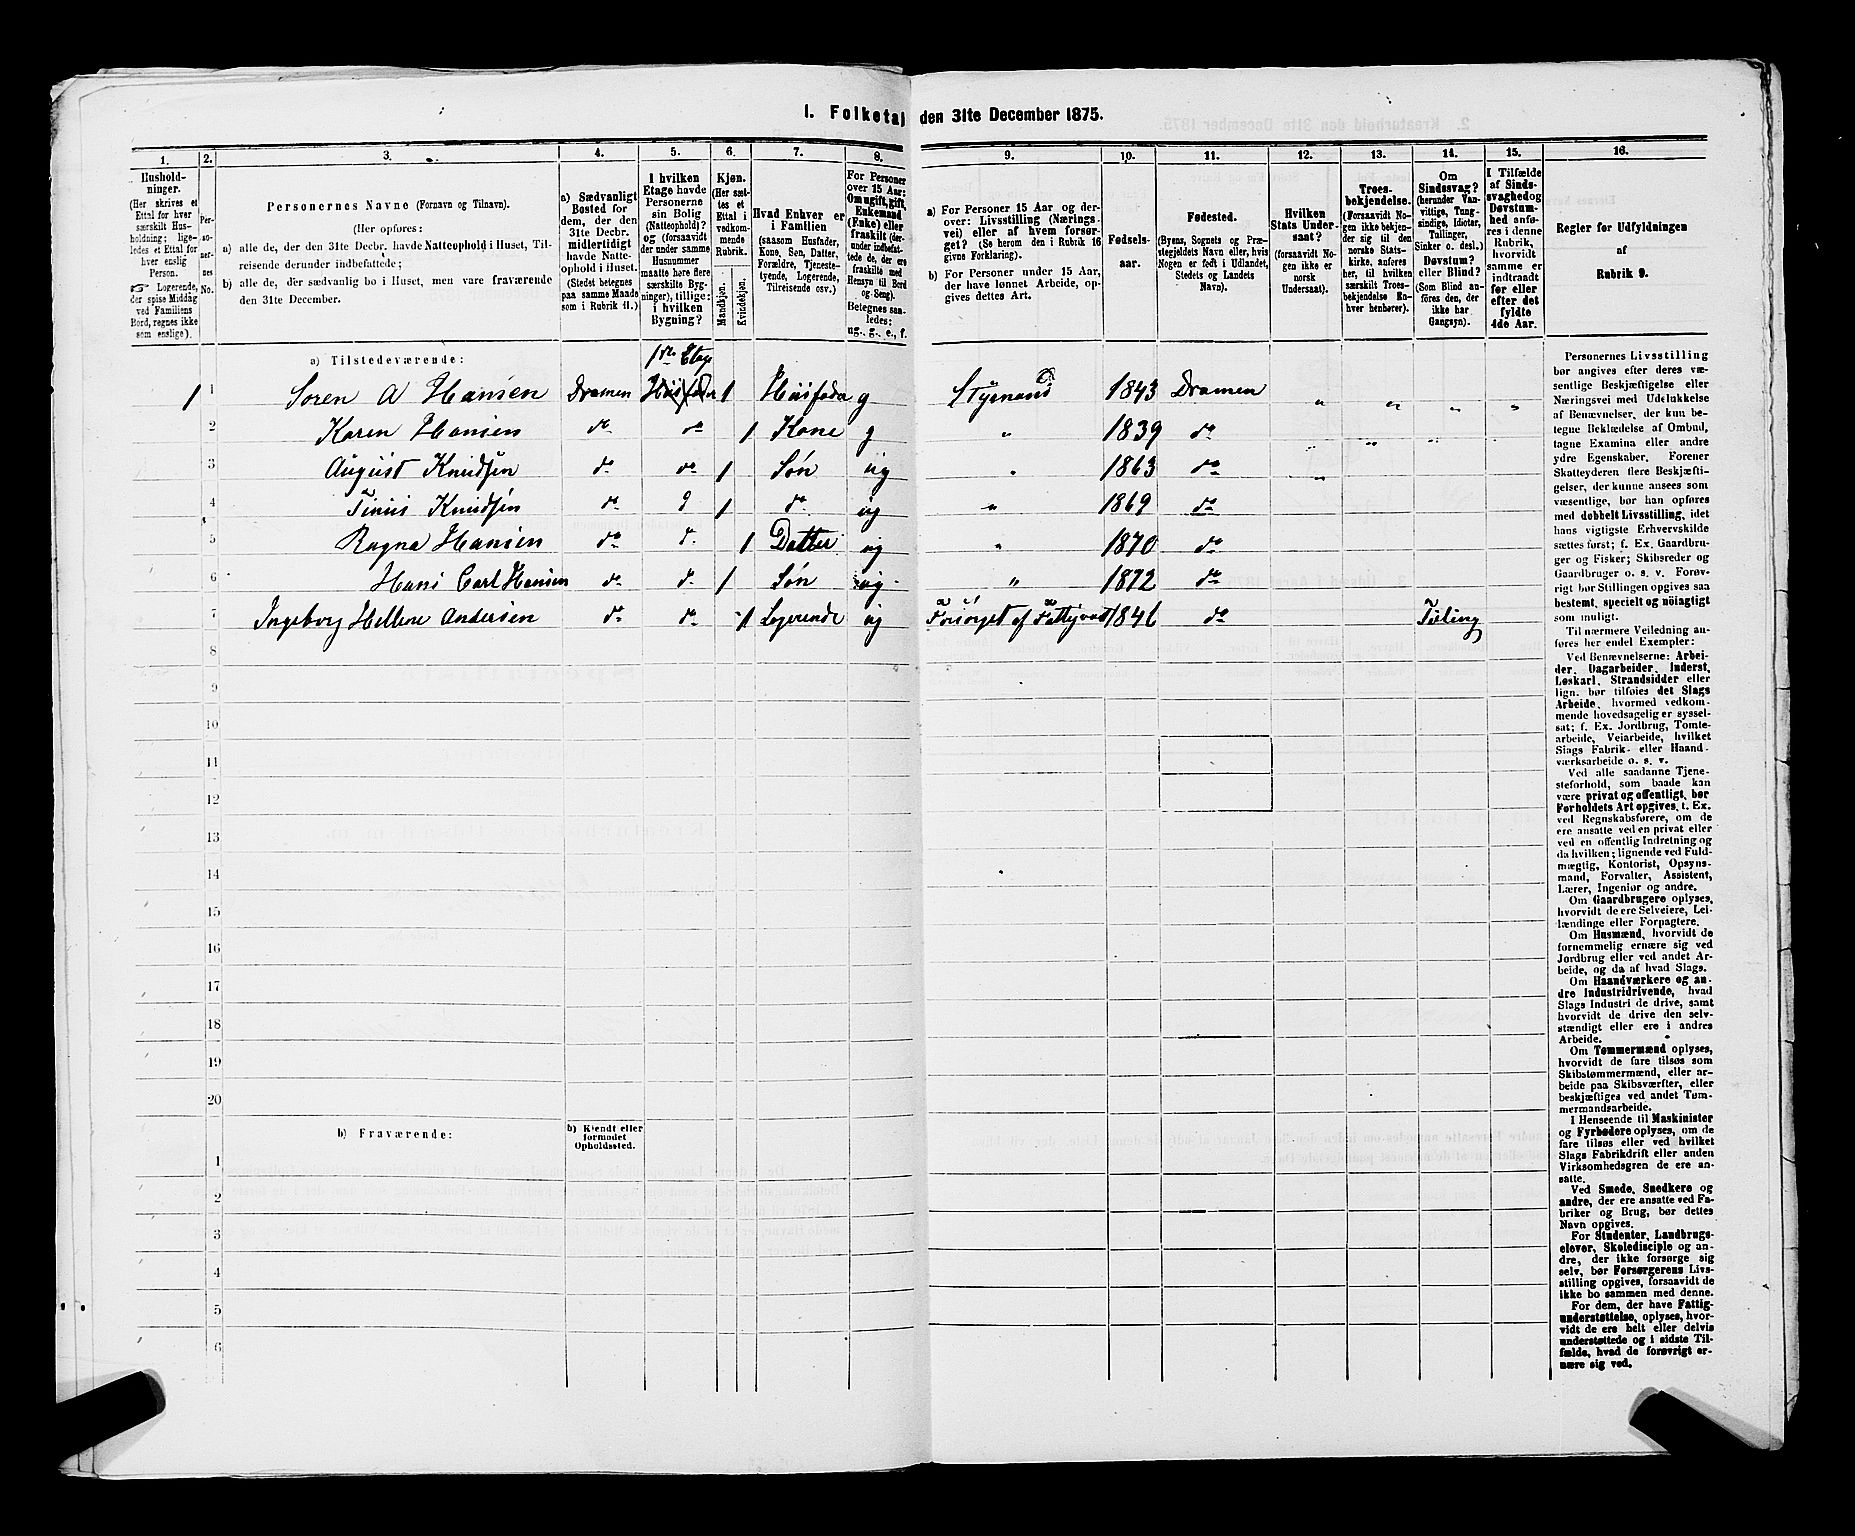 1. Folketæl den 31te December 1875.
1. 2. 3. 4. 5. 6. 7. 8. 9. 10. 11. 12. 13. 14. 15. 16.
Husholdninger.
(Her skrives et
Ettal for hver
særskilt Husholdning;
ligeledes et Ettal for
hver enslig
Person.
☞ Logerende,
der spise Middag
ved Familiens
Bord, regnes ikke
som enslige).
Personernes No.
Personernes Navne (Fornavn og Tilnavn).
(Her opføres:
a) alle de, der den 31te Decbr. havde Natteophold i Huset, Tilreisende derunder indbefattede;
b) alle de, der sædvanlig bo i Huset, men vare fraværende
den 31te December.
a) Sædvanligt
Bosted for
dem, der den
31te Decbr.
midlertidigt
havde Natteophold i Huset.
(Stedet betegnes
paa samme Maade
som i Rubrik 11.)
I hvilken
Etage havde
Personerne
sin Bolig
(Natteophold)?
og (forsaavidt
der under samme
Husnummer
maatte høre flere
særskilte Bygninger), tillige:
i hvilken
Bygning?
Kjøn.
(Her sættes et
Ettal i
vedkommende
Rubrik.
Mandkjøn.
Kvindekjøn.
Hvad Enhver er
i Familien
(saasom Husfader,
Kone, Søn, Datter,
Forældre, Tjenestetyende, Logerende,
Tilreisende osv.)
For Personer
over 15 Aar:
Om ugift, gift,
Enkemand
(Enke) eller
fraskilt (derunder indbefattede de, der ere
fraskilte med
Hensyn til Bord
og Seng).
Betegnes saaledes:
ug., g., e., f.
a) For Personer 15 Aar og derover: Livsstilling (Næringsvei) eller af hvem forsørget? (Se herom den i Rubrik 16
givne Forklaring).
b) For Personer under 15 Aar,
der have lønnet Arbeide, opgives dettes Art.
Fødselsaar.
Fødested.
(Byens, Sognets og Præstegjeldets Navn eller, hvis
Nogen er født i Udlandet,
Stedets og Landets
Navn).
Hvilken
Stats Undersaat?
(forsaavidt Nogen ikke er
norsk
Undersaat).
Troesbekjendelse.
(Forsaavidt Nogen ikke bekjender sig til den
norske Statskirke, anføres
her, til hvilken
særskilt Troesbekjendelse Enhver henhører).
Om
Sindssvag?
(herunder Vanvittige, Tungsindige, Idioter,
Tullinger,
Sinker o. desl.)
Døvstum?
eller Blind?
(Som Blind anføres den, der
ikke har
Gangsyn).
I Tilfælde
af Sindssvaghed og
Døvstumhed anføres i denne
Rubrik,
hvorvidt
samme er
indtraadt
før eller
efter det
fyldte
4de Aar.
Regler for Udfyldningen
af
Rubrik 9.
a) Tilstedeværende:
1ste Etage
1 1 Soren A Hansen Dramen Husfader 1 Husfader g Styrmand 1843 Dramen " " " "
2 Karen Hansen do do 1 Kone g " 1839 do " " "
3 August Knudsen do do 1 Søn ug " 1863 do "
4 Tinus Knudsen do 1 do ug " 1869 do
5 Ragna Hansen do do 1 Datter ug " 1870 do
6 Hans Carl Hansen do do 1 Søn ug " 1872 do
7 Ingeborg Hellene Andersen do do 1 Logerende ug Forsørget af Fattigvæs 1846 do Tulling
8
9
10
11
12
13
14
15
16
17
18
19
20
b) Fraværende:
b) Kjendt eller
formodet
Opholdssted.
1
2
3
4
5
6
Personernes Livsstilling
bør angives efter deres væsentlige Beskjæftigelse eller
Næringsvei med Udelukkelse
af Benævnelser, der kun betegne Beklædelse af Ombud,
tagne Examina eller andre
ydre Egenskaber. Forener
Skatteyderen flere Beskjæftigelser, der kunne ansees som
væsentlige, bør han opføres
med dobbelt Livsstilling, idet
hans vigtigste Erhvervskilde
sættes først; f. Ex. Gaardbruger og Fisker; Skibsreder og
Gaardbruger o. s. v. Forøvrigt bør Stillingen opgives saa
bestemt, specielt og nøiagtigt
som muligt.
Til nærmere Veiledning anføres her endel Exempler:
Ved Benævnelserne: Arbeider, Dagarbeider, Inderst,
Løskarl, Strandsidder eller
lign. bør tilføies det Slags
Arbeide, hvormed vedkommende hovedsagelig er sysselsat; f. Ex. Jordbrug, Tomtearbeide, Veiarbeide, hvilket
Slags Fabrik- eller Haandværksarbeide o. s. v.
Ved alle saadanne Tjenesteforhold, som baade kan
være privat og offentligt, bør
Forholdets Art opgives, t. Ex.
ved Regnskabsførere, om de
ere ansatte ved en privat eller
ved en offentlig Indretning og
da hvilken; lignende ved Fuldmægtig, Kontorist, Opsynsmand, Forvalter, Assistent,
Lærer, Ingeniør og andre.
Om Gaardbrugere oplyses,
hvorvidt de ere Selveiere, Leilændinge eller Forpagtere.
Om Husmænd, hvorvidt de
fornemmelig ernære sig ved
Jordbrug eller ved andet Arbeide, og da af hvad Slags.
Om Haandværkere og andre Industridrivende, hvad
Slags Industri de drive, samt
hvorvidt de drive den selvstændigt eller ere i andres
Arbeide.
Om Tømmermænd oplyses,
hvorvidt de fare tilsøs som
Skibstømmermænd, eller arbeide paa Skibsværfter, eller
beskjæftiges ved andet Tømmermandsarbeide.
I Henseende til Maskinister
og Fyrbødere oplyses, om de
fare tilsøs eller ved hvilket
Slags Fabrikdrift eller anden
Virksomhedsgren de ere ansatte.
Ved Smede, Snedkere og
andre, der ere ansatte ved Fabriker og Brug, bør dettes
Navn opgives.
For Studenter, Landbrugselever, Skoledisciple og andre, der ikke forsørge sig
selv, bør Forsørgerens Livsstilling opgives, forsaavidt de
ikke bo sammen med denne.
For dem, der have Fattigunderstøttelse, oplyses, hvorvidt de ere helt eller delvis
understøttede og i sidste Tilfælde, hvad de forøvrigt ernære sig ved.